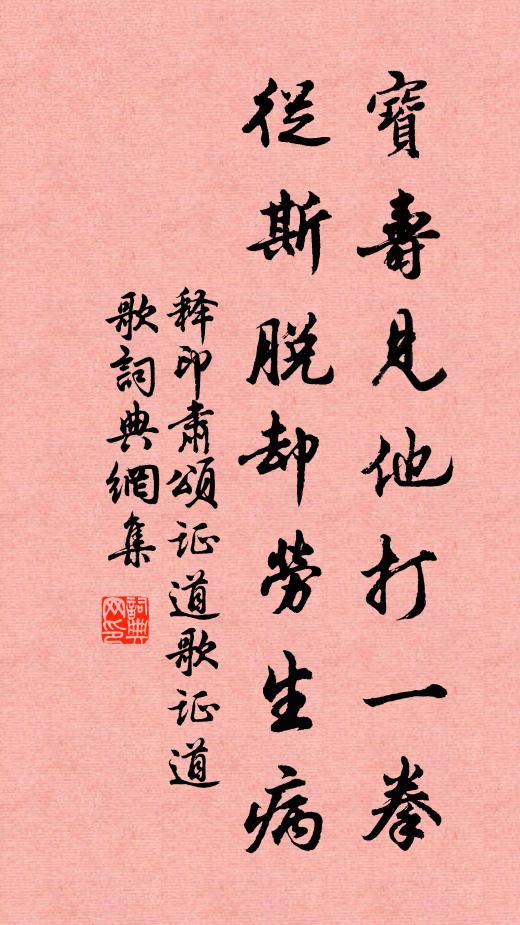 寶壽見他打一拳
從斯脫却勞生病
释印肅頌证道歌证道
歌詞典網集
詞典網印